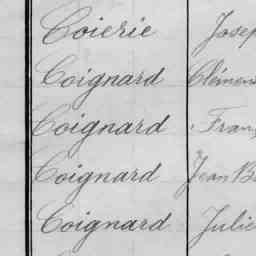 Coierie Josep
Coignard Clémen
Coignard Fran
Coignard Jean B
Coignard Julie